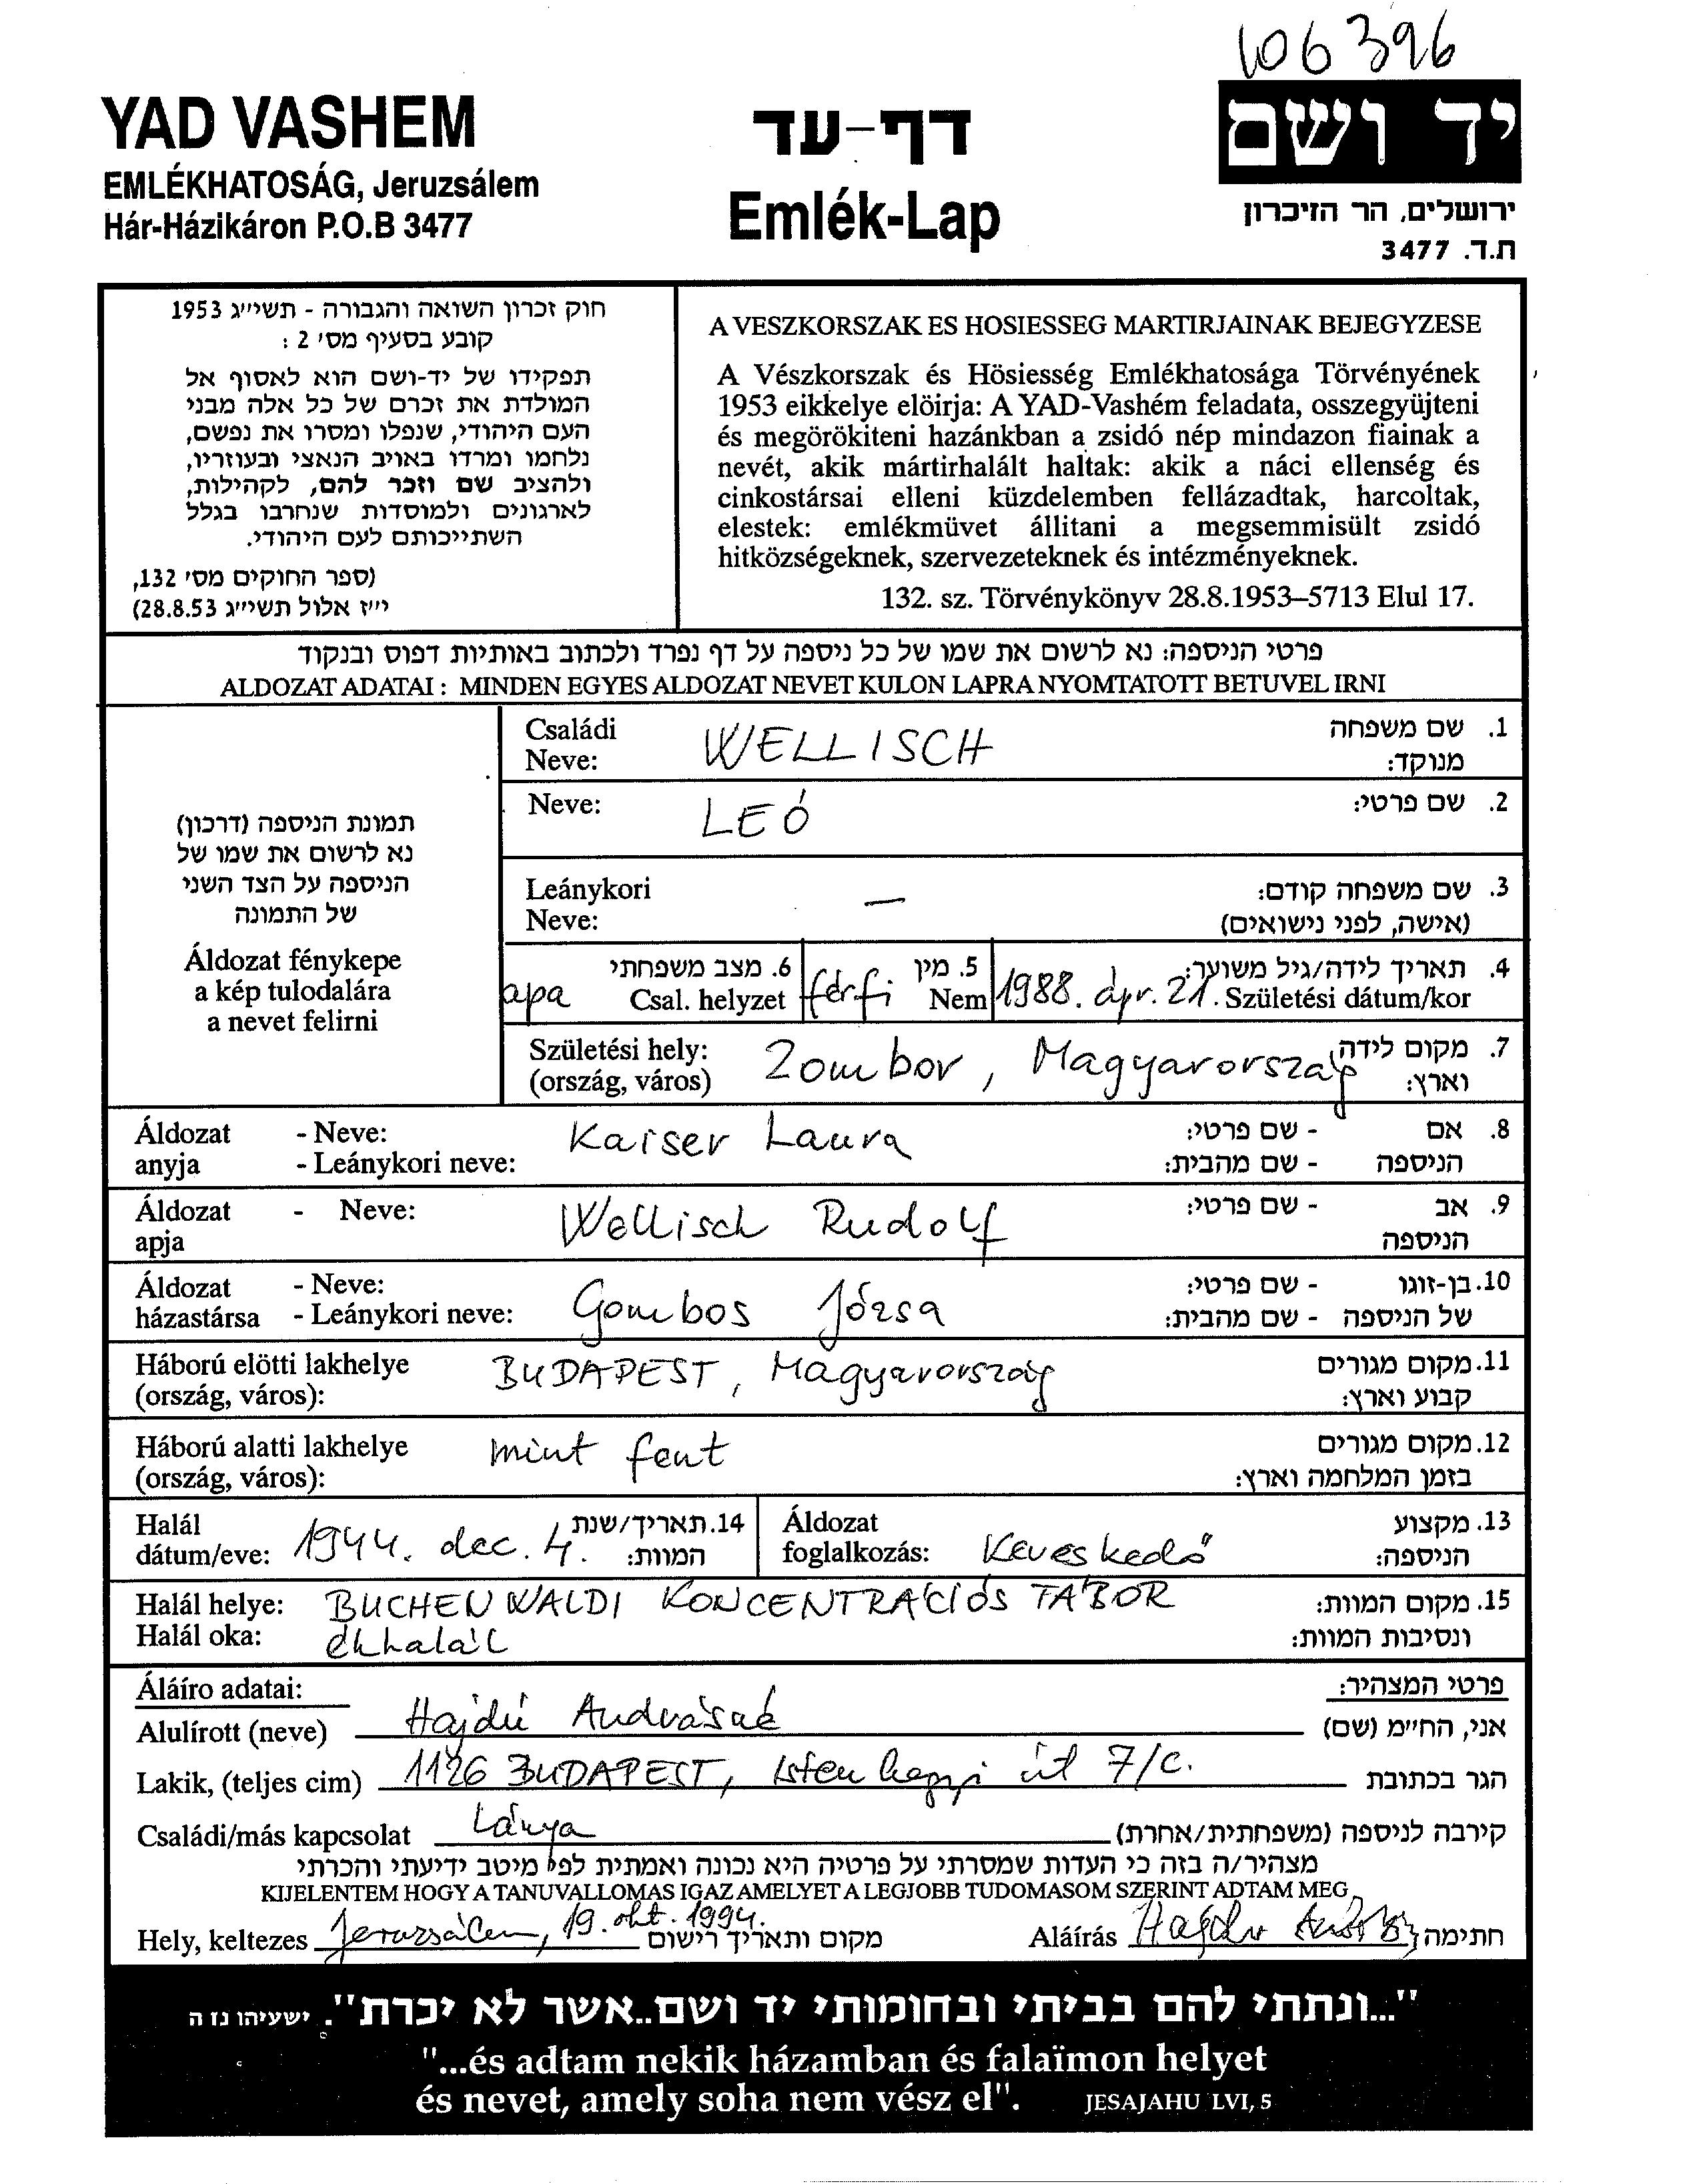 106396
YAD VASHEM
EMLÉKHATOSÁG, Jeruzsálem
Hár-Házikáron P.O.B 3477
דף-עד
Emlék-Lap
יד ושם
ירושלים, הר הזיכרון
ת.ד. 3477
חוק זכרון השואה והגבורה - תשי״ג 1953
קובע בסעיף מס׳ 2 :
תפקידו של יד-ושם הוא לאסוף אל
המולדת את זכרם של כל אלה מבני
העם היהודי, שנפלו ומסרו את נפשם,
נלחמו ומרדו באויב הנאצי ובעוזריו,
ולהציב שם וזכר להם, לקהילות,
לארגונים ולמוסדות שנחרבו בגלל
השתייכותם לעם היהודי.
(ספר החוקים מס׳ 132,
י״ז אלול תשי״ג 28.8.53)
A VESZKORSZAK ES HOSIESSEG MARTIRJAINAK BEJEGYZESE
A Vészkorszak és Hösiesség Emlékhatosága Törvényének
1953 eikkelye elöirja: A YAD-Vashém feladata, osszegyüjteni
és megörökiteni hazánkban a zsidó nép mindazon fiainak a
nevét, akik mártirhalált haltak: akik a náci ellenség és
cinkostársai elleni küzdelemben fellázadtak, harcoltak,
elestek: emlékmüvet állitani a megsemmisült zsidó
hitközségeknek, szervezeteknek és intézményeknek.
132. sz. Törvénykönyv 28.8.1953–5713 Elul 17.
פרטי הניספה: נא לרשום את שמו של כל ניספה על דף נפרד ולכתוב באותיות דפוס ובנקוד
ALDOZAT ADATAI : MINDEN EGYES ALDOZAT NEVET KULON LAPRA NYOMTATOTT BETUVEL IRNI
תמונת הניספה (דרכון)
נא לרשום את שמו של
הניספה על הצד השני
של התמונה
Áldozat fénykepe
a kép tulodalára
a nevet felirni
Családi
Neve: WELLISCH
1. שם משפחה
מנוקד:
Neve: LEÓ 2. שם פרטי:
Leánykori
Neve: —
3. שם משפחה קודם:
(אישה, לפני נישואים)
apa 6. מצב משפחתי
Csal. helyzet
férfi 5. מין
Nem
1988. ápr. 21. 4. תאריך לידה/גיל משוער:
Születési dátum/kor
Születési hely: Zombor, Magyarország
(ország, város)
7. מקום לידה
וארץ:
Áldozat - Neve: Kaiser Laura
anyja - Leánykori neve:
8. אם - שם פרטי:
הניספה - שם מהבית:
Áldozat - Neve: Wellisch Rudolf
apja
9. אב - שם פרטי:
הניספה
Áldozat - Neve: Gombos Józsa
házastársa - Leánykori neve:
10. בן-זוגו - שם פרטי:
של הניספה - שם מהבית:
Háború elötti lakhelye BUDAPEST, Magyarország
(ország, város):
11. מקום מגורים
קבוע וארץ:
Háború alatti lakhelye mint fent
(ország, város):
12. מקום מגורים
בזמן המלחמה וארץ:
Halál
dátum/eve: 1944. dec. 4.
14. תאריך/שנת
המוות:
Áldozat
foglalkozás: Kereskedő
13. מקצוע
הניספה:
Halál helye: BUCHENWALDI KONCENTRÁCIÓS TÁBOR
Halál oka: éhhalál
15. מקום המוות:
ונסיבות המוות:
Áláíro adatai: פרטי המצהיר:
Alulírott (neve) Hajdú Andrásné אני, החי״מ (שם)
Lakik, (teljes cim) 1126 BUDAPEST, Istenhegyi út 7/C. הגר בכתובת
Családi/más kapcsolat Lánya קירבה לניספה (משפחתית/אחרת)
מצהיר/ה בזה כי העדות שמסרתי על פרטיה היא נכונה ואמתית לפי מיטב ידיעתי והכרתי
KIJELENTEM HOGY A TANUVALLOMAS IGAZ AMELYET A LEGJOBB TUDOMASOM SZERINT ADTAM MEG
Hely, keltezes Jeruzsálem, 19. okt. 1994. מקום ותאריך רישום Aláírás Hajdu חתימה
"...ונתתי להם בביתי ובחומותי יד ושם..אשר לא יכרת". ישעיהו נז ה
"...és adtam nekik házamban és falaïmon helyet
és nevet, amely soha nem vész el". JESAJAHU LVI, 5